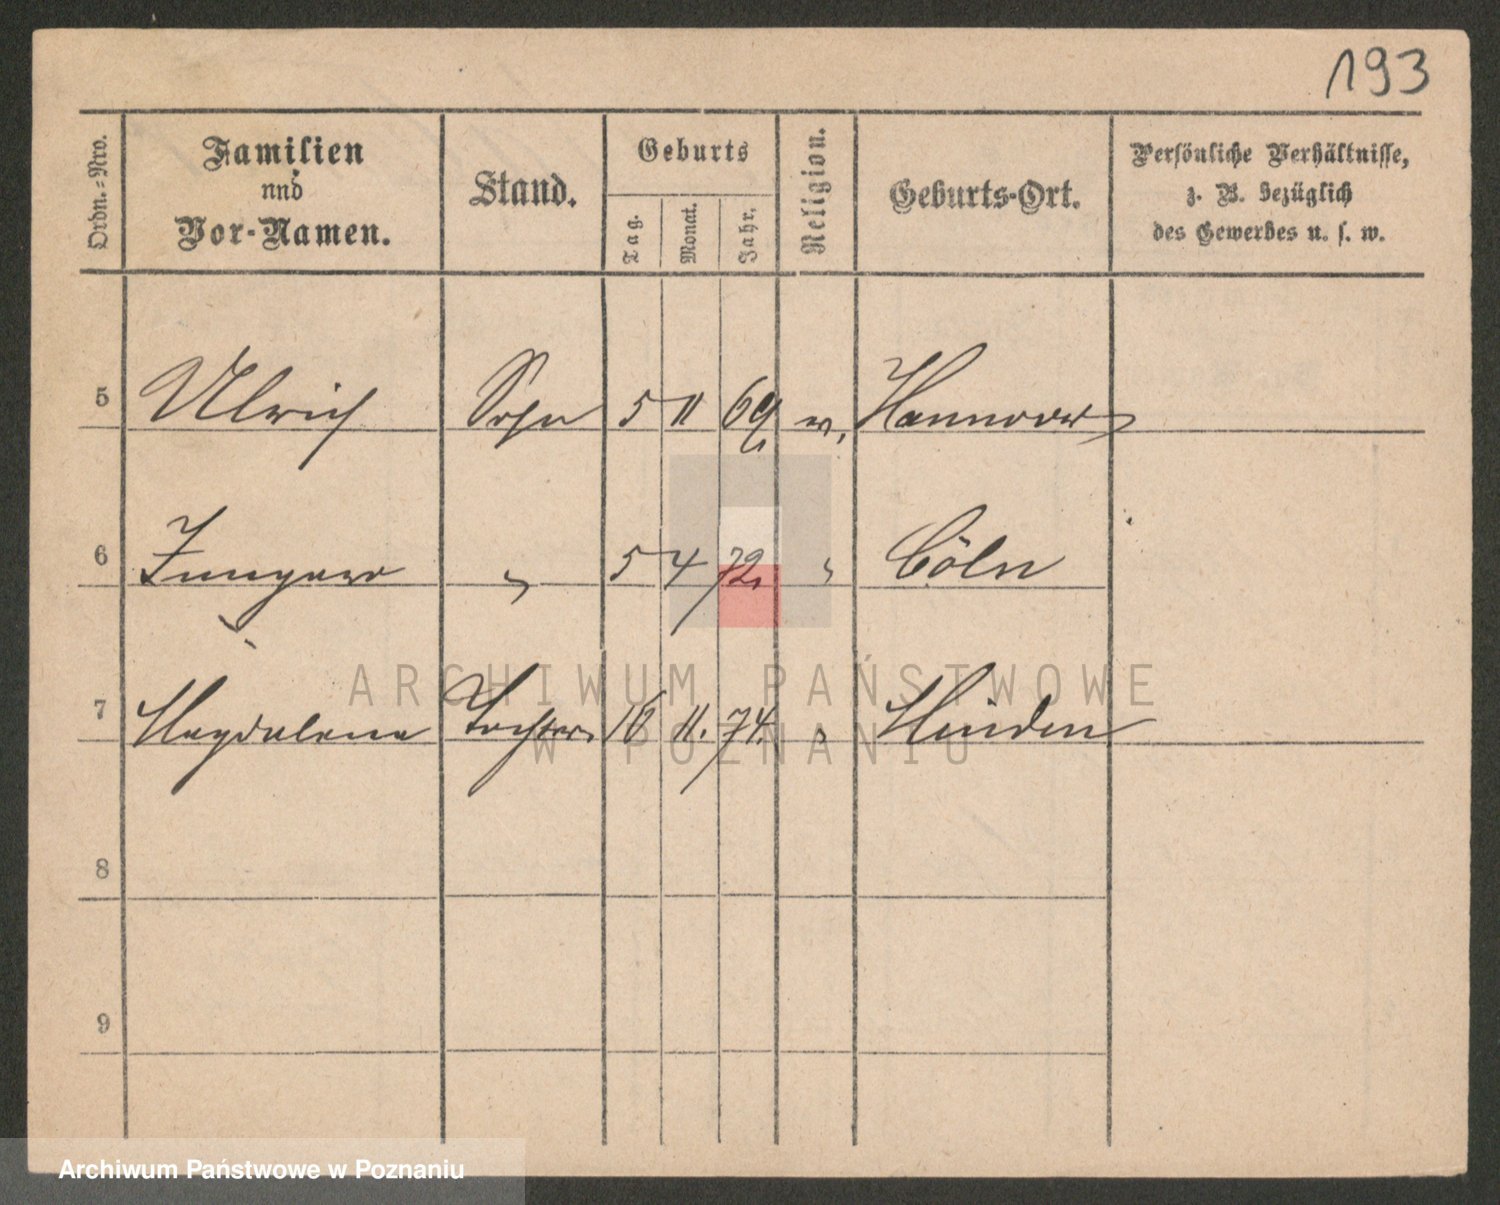 193
Ordn.=Nro.
Familien
und
Vor-Namen.
Stand.
Geburts
Tag.
Monat.
Jahr.
Religion.
Geburts-Ort.
Persönliche Verhältnisse,
z. B. bezüglich
des Gewerbes u. s. w.
5 Ulrich Sohn 5 11 69. Hannover
6 " 5 4 72. " Cöln
ARCHIWUM PAŃSTWOWE
7 Magdalena Tochter. 16 11. 74. " Minden
W POZNANIU
8
9
Archiwum Państwowe w Poznaniu